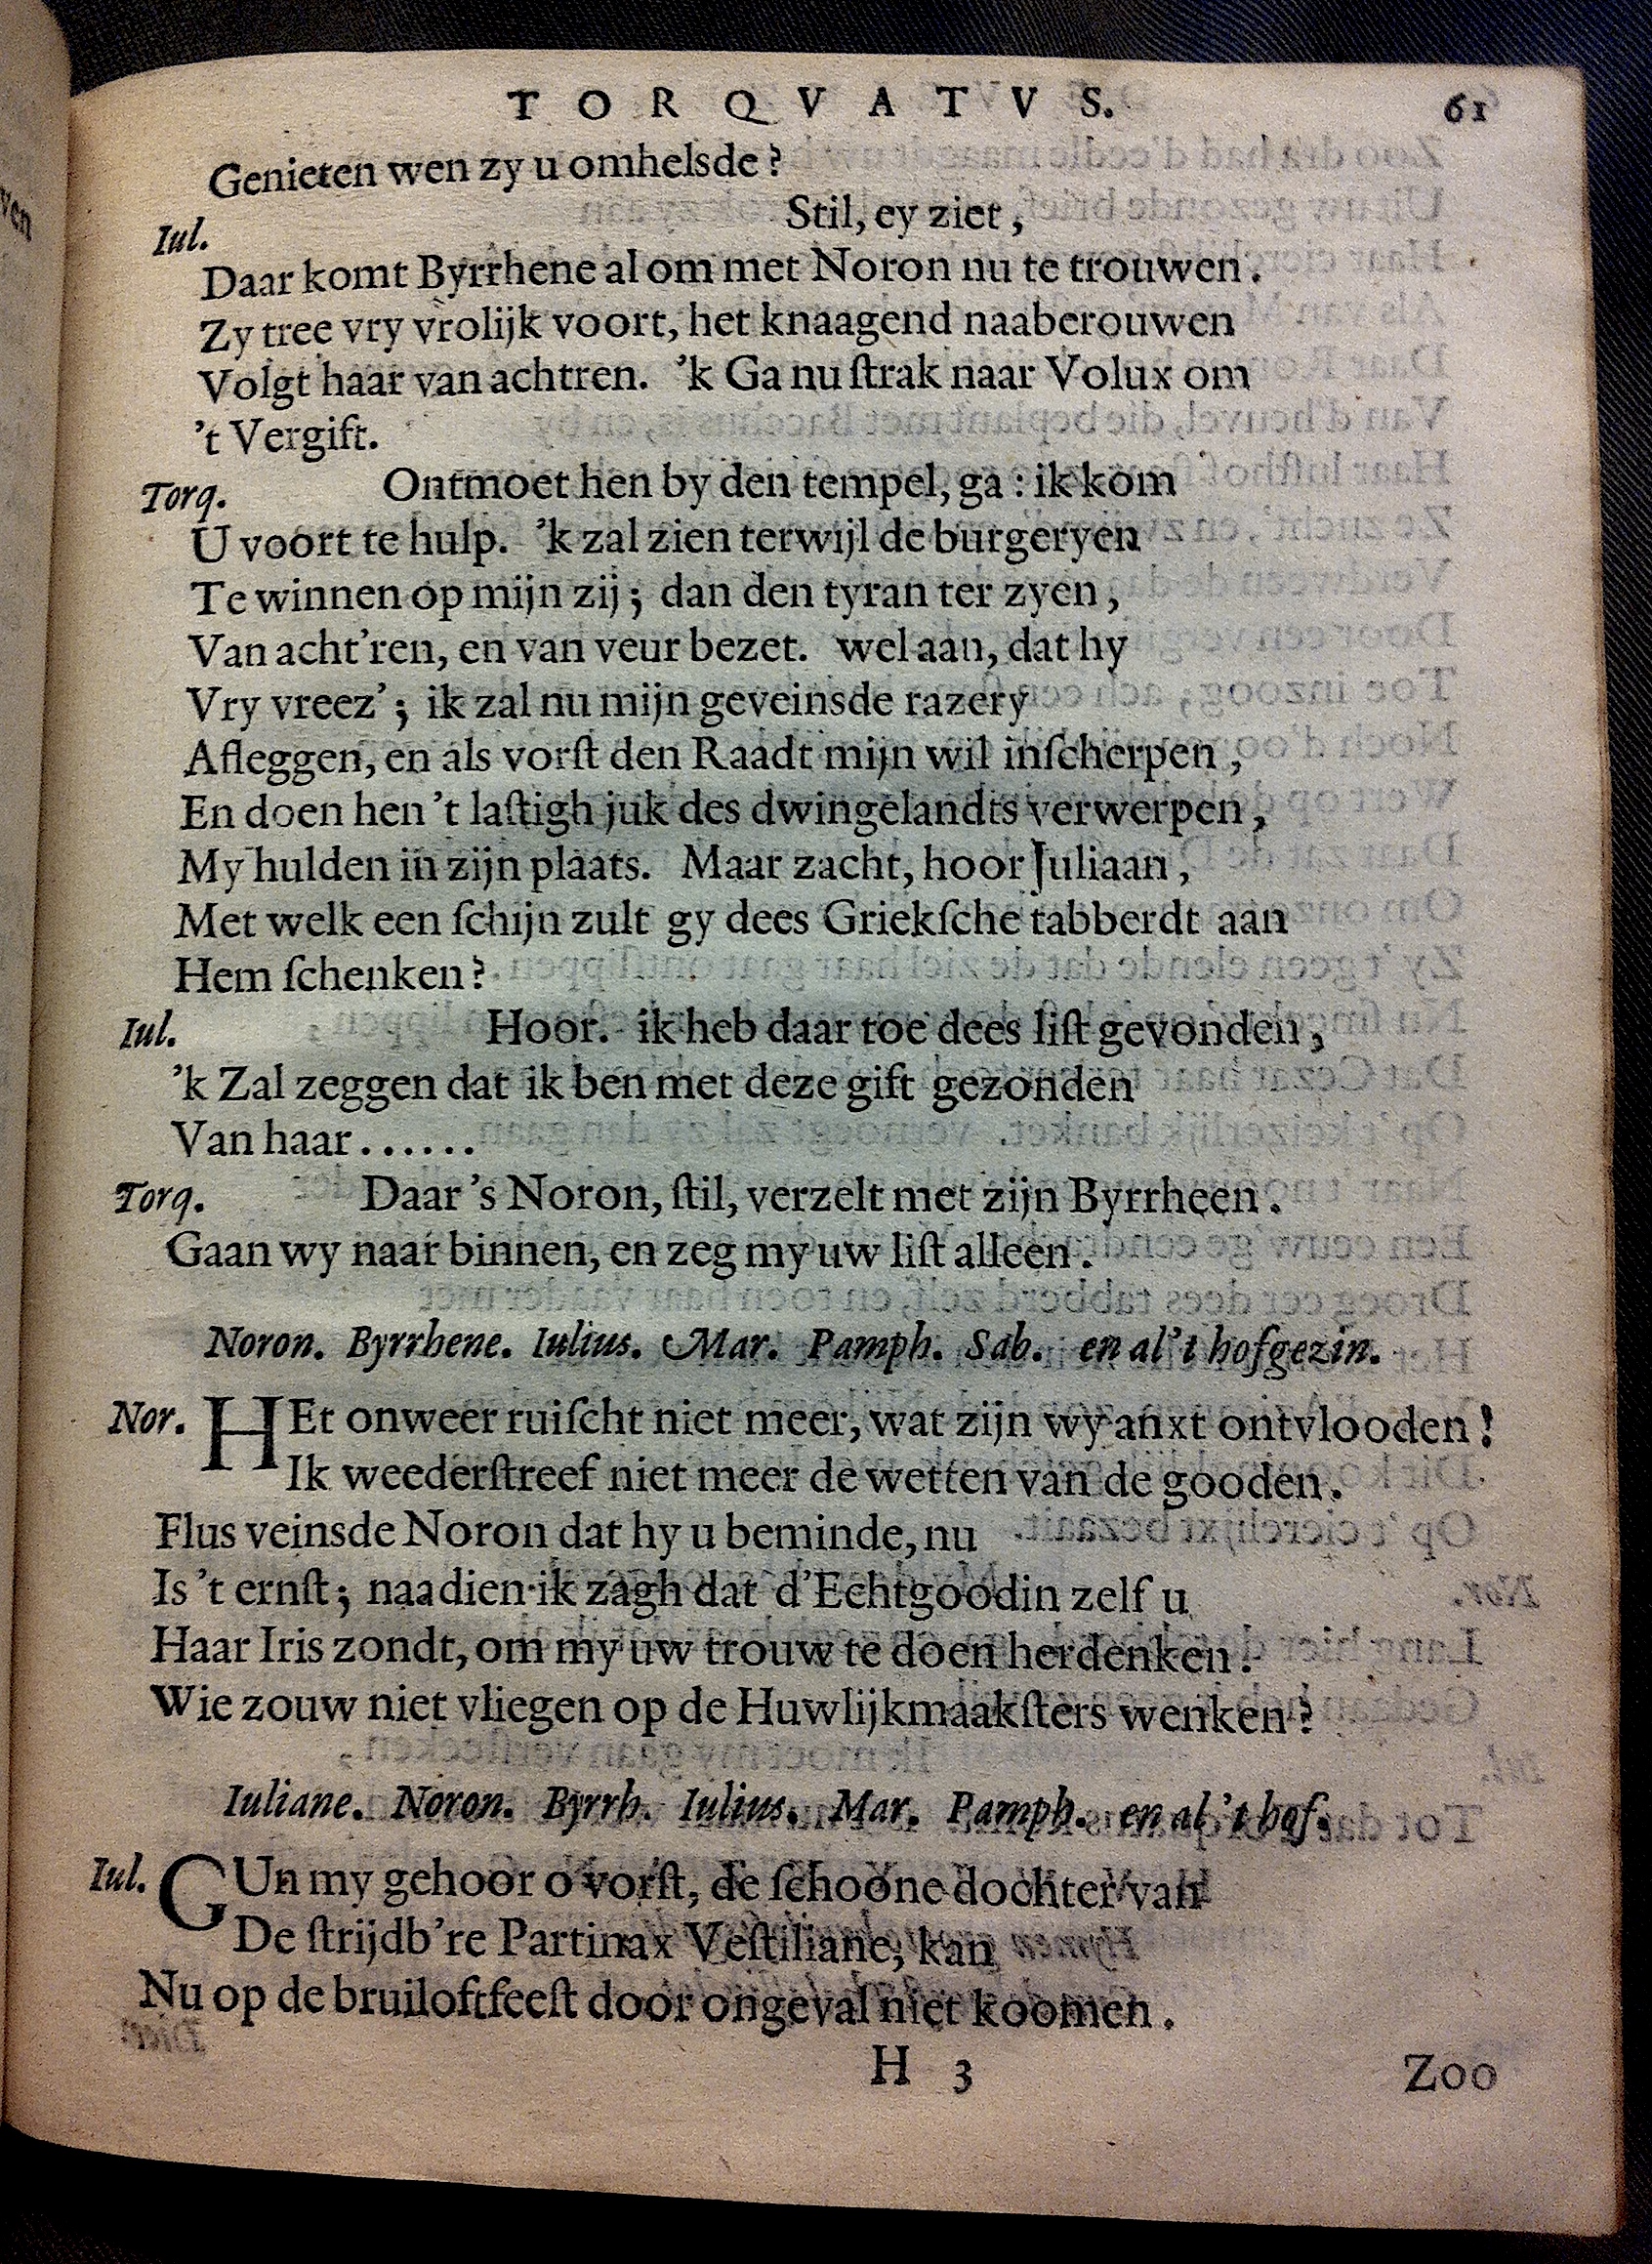 TORQVATVS. 61
Genieten wen zy u omhelsde?
Iul. Stil, ey ziet,
Daar komt Byrrhene al om met Noron nu te trouwen.
Zy tree vry vrolijk voort, het knaagend naaberouwen
Volgt haar van achtren. 'k Ga nu ſtrak naar Volux om
't Vergift.
Torq. Ontmoet hen by den tempel, ga: ik kom
U voort te hulp. 'k zal zien terwijl de burgeryen
Te winnen op mijn zij; dan den tyran ter zyen,
Van acht'ren, en van veur bezet. wel aan, dat hy
Vry vreez'; ik zal nu mijn geveinsde razery
Afleggen, en als vorſt den Raadt mijn wil inſcherpen,
En doen hen 't laſtigh juk des dwingelandts verwerpen,
My hulden in zijn plaats. Maar zacht, hoor Juliaan,
Met welk een ſchijn zult gy dees Griekſche tabberdt aan
Hem ſchenken?
Iul. Hoor. ik heb daar toe dees liſt gevonden,
'k Zal zeggen dat ik ben met deze gift gezonden
Van haar......
Torq. Daar's Noron, ſtil, verzelt met zijn Byrrheen.
Gaan wy naar binnen, en zeg my uw liſt alleen.
Noron. Byrrhene. Iulius. Mar. Pamph. Sab. en al't hofgezin.
Nor. HEt onweer ruiſcht niet meer, wat zijn wy anxt ontvlooden!
Ik weederſtreef niet meer de wetten van de gooden.
Flus veinsde Noron dat hy u beminde, nu
Is 't ernſt; naadien ik zagh dat d'Echtgoodin zelf u
Haar Iris zondt, om my uw trouw te doen herdenken.
Wie zouw niet vliegen op de Huwlijkmaakſters wenken?
Iuliane. Noron. Byrrh. Iulius. Mar. Pamph. en al't hof.
Iul. GUn my gehoor o vorſt, de ſchoone dochter van
De ſtrijdb're Partinax Veſtiliane, kan
Nu op de bruiloftfeeſt door ongeval niet koomen.
H 3 Zoo